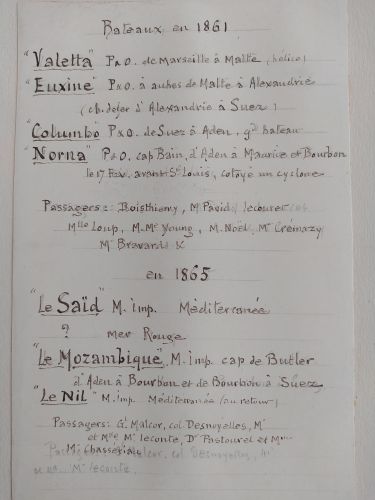 Bateaux en 1861
"Valetta" P&O. de Marseille à Malte (hélice)
"Euxine" P&O à aubes de Malte à Alexandrie
(ch. de fer d'Alexandrie à Suez)
"Columbo" P&O. de Suez à Aden, gd bateau
"Norna" P&O, cap Bain, d'Aden à Maurice et Bourbon
le 17 Fev. avant St Louis, cotoyé un cyclone
Passagers: Boisthierry, M. Pavid, Lecouret
Mlle Loup, M. Mr Young, M. Noël, Mr Crémazy
Mr Bravards &
en 1865
"Le Saïd" M. imp. Méditerranée
? mer Rouge
"Le Mozambique", M. imp cap de Butler
d'Aden à Bourbon et de Bourbon à Suez
"Le Nil" M. imp. Méditerranée (au retour)
Passagers: Gl Malcor, col. Desnoyelles, Mr
et Mme Mr Leconte, Dr Pastourel et
Mr Chasseriau
Mr Leconte,